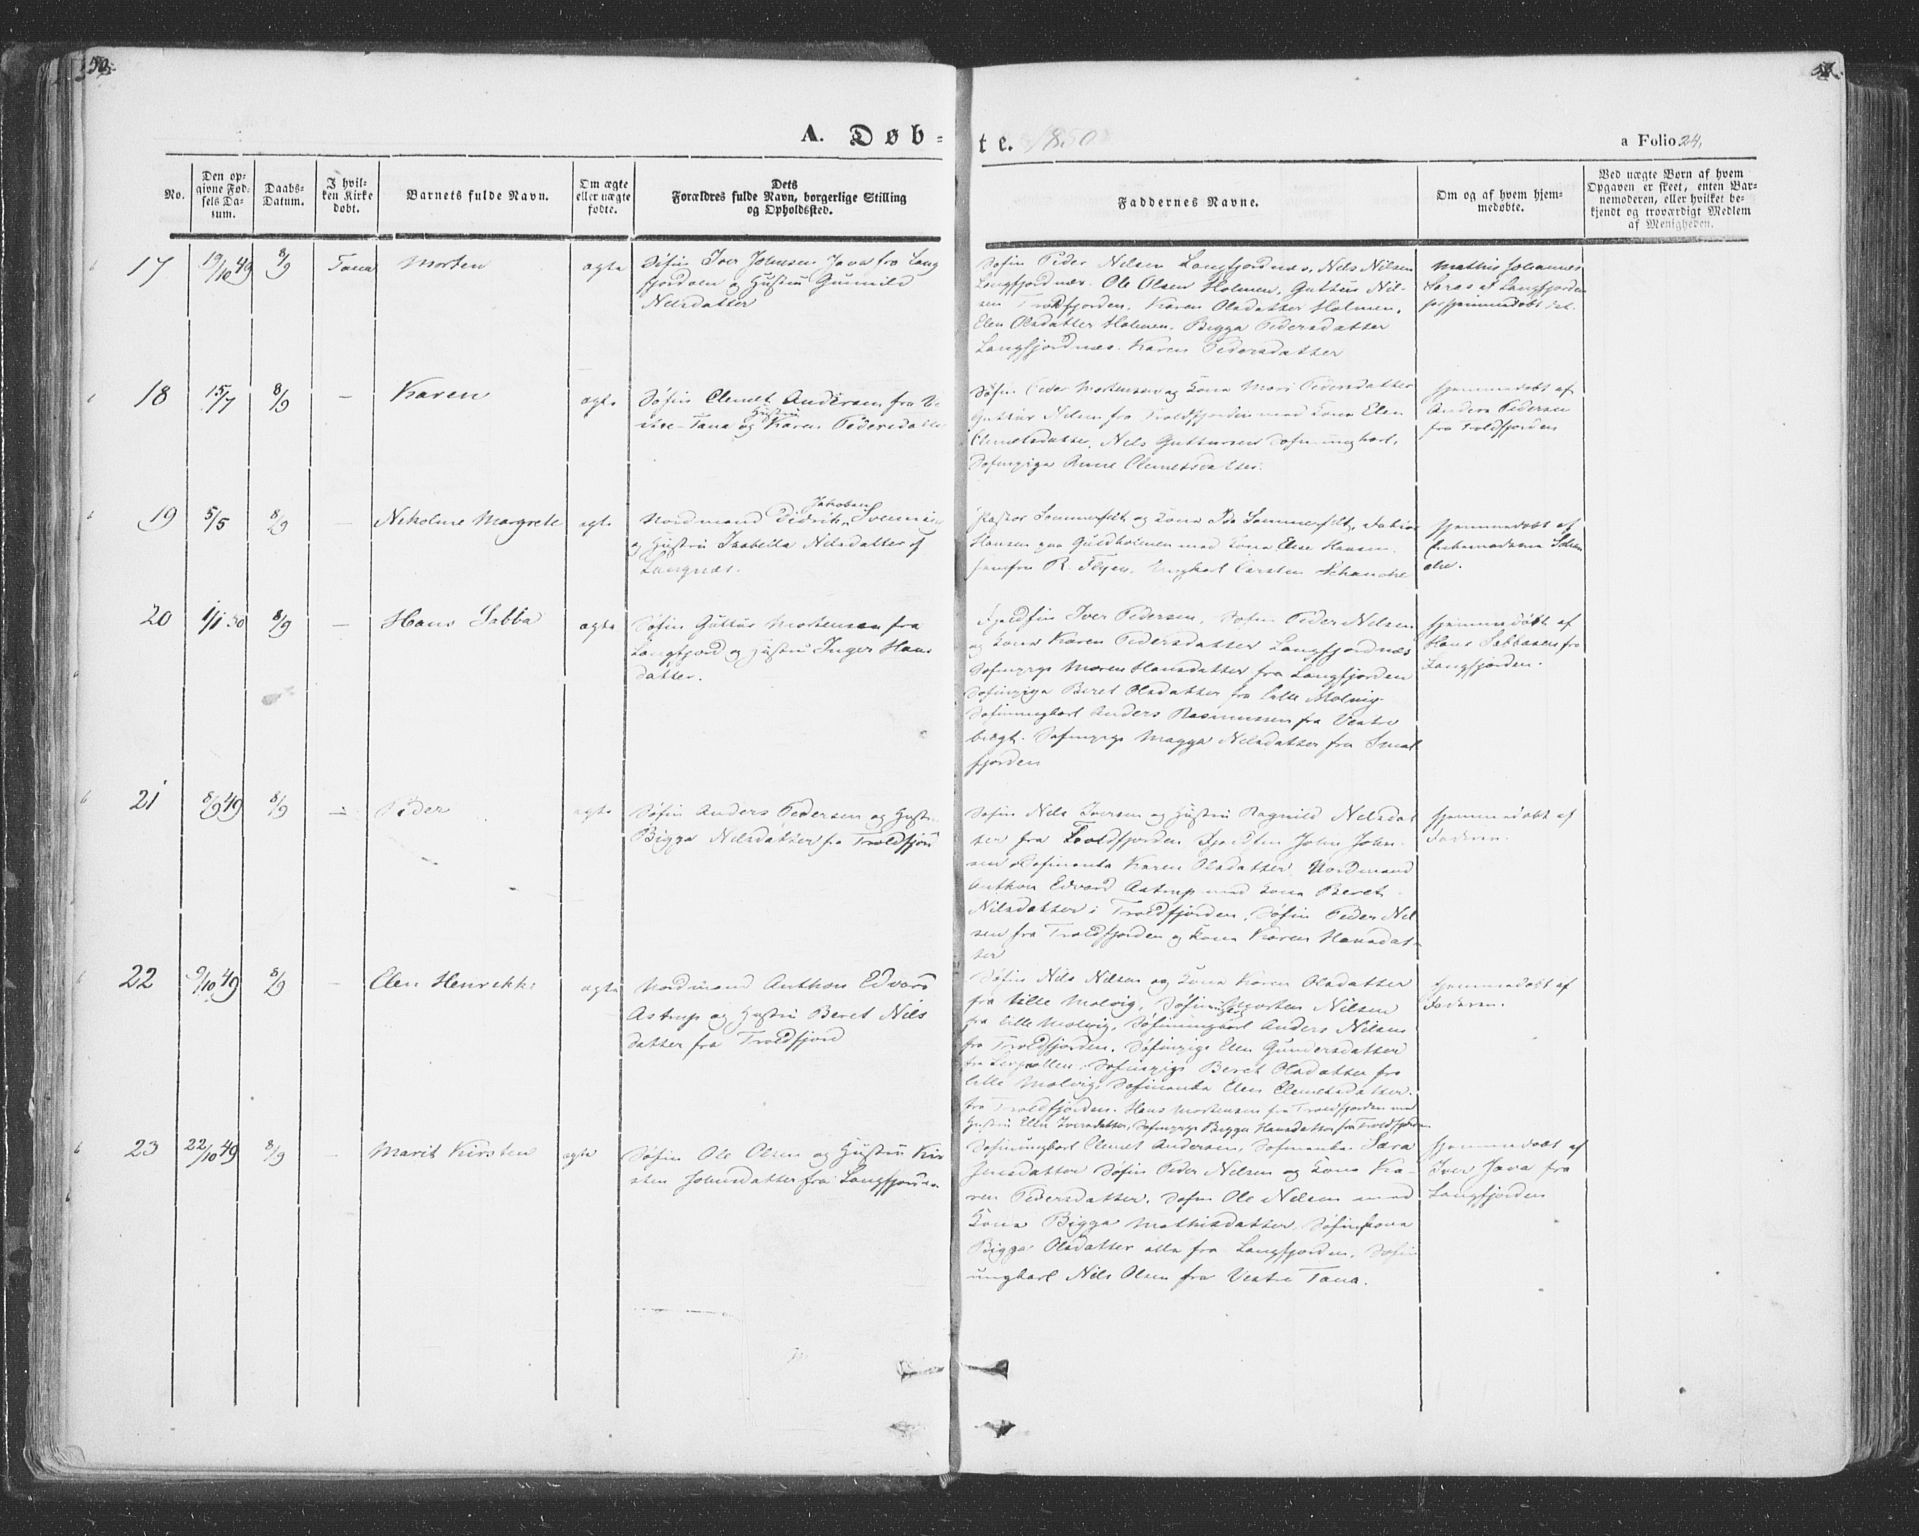 50.
51.
A. Døb-
te. 1850
a Folio 24.
No.
Den op-
givne Fød-
sels Da-
tum.
Daabs-
Datum.
I hvil-
ken Kirke
døbt.
Barnets fulde Navn.
Om ægte
eller uægte
fødte.
Dets
Forældres fulde Navn, borgerlige Stilling
og Opholdssted.
Faddernes Navne.
Om og af hvem hjem-
medøbte.
Ved uægte Børn af hvem
Opgaven er skeet, enten Bar-
nemoderen, eller hvilket be-
kjendt og troværdigt Medlem
af Menigheden.
17
19/10 49
8/9
Tana
Morten
ægte
Søfin Iver Johnsen Java fra Lang
fjorden og Hustru Gunnild
Nilsdatter
Søfin Peder Nilsen Langfjordnæs, Nils Nilsen
Langfjordnæs. Ole Olsen Holmen, Guttur Nil-
sen Troldfjorden. Karen Olsdatter Holmen,
Elen Olsdatter Holmen. Bigga Pedersdatter
Langfjordnæs. Karen Pedersdatter
Mathis Johannes
af Langfjorden
18
15/7
8/9
–
Karen
ægte
Søfin Clemet Andersen fra Ve
stre-Tana og Hustru Karen Pedersdatter
Søfin Peder Mortensen og Kona Mari Pedersdatter
Guttur Nilsen fra Troldfjorden med Kona Elen
Clemetsdatter, Nils Guttursen Søfinungkarl,
Søfinpige Anne Clemetsdatter.
hjemmedøbt af
Anders Pedersen
fra Troldfjorden
19
5/5
8/9
–
Nikoline Margrete
ægte
Nordmand Didrik Jakobsen
og Hustru Isabella Nilsdatter af
Langnæs.
Pastor Sommerfelt og Kona Ida Sommerfelt,
Hansen paa Guldholmen med Kona Elise Hansen.
Jomfru R. Ungkarl Carsten Schanche
hjemmedøbt af
20
1/1 50
8/9
–
Hans Sabba
ægte
Søfin Guttur Mortensen fra
Langfjord og Hustru Inger Hans
datter.
Fjeldfin Iver Pedersen, Søfin Peder Nilsen
og Kona Karen Pedersdatter Langfjordnæs
Søfinpige Maren Hansdatter fra Langfjorden
Søfinpige Beret Olsdatter fra lille Molvig.
Søfinungkarl Anders Rasmussen fra Vestre
bugt. Søfinpige Magga Nilsdatter fra Smal
fjorden
hjemmedøbt af
Hans Sabbasen fra
Langfjorden.
21
8/9 49
8/9
–
Peder
ægte
Søfin Anders Pedersen og Hustru
Bigga Nilsdatter fra Troldfjord
Søfin Nils Iversen og Hustru Ragnild Nilsdat
ter fra Troldfjorden Fjeldfin John John-
sen Søfinenke Karen Olsdatter. Nordmand
Anthon Edvard Astrup med Kona Beret
Nilsdatter i Troldfjorden. Søfin Peder Nil
sen fra Troldfjorden og Kona Karen Hansdat-
ter
hjemmedøbt af
Faderen.
22
9/10 49
8/9
–
Elen Henrikke
ægte
Nordmand Anthon Edvard
Astrup og Hustru Beret Nils
datter fra Troldfjord
Søfin Nils Nilsen og Kona Karen Olsdatter
fra lille Molvig, Søfin Morten Nilsen
fra lille Molvig, Søfinungkarl Anders Nilsen
fra Troldfjorden. Søfinpige Elen Gundersdatter
fra Søfinpige Beret Olsdatter fra
lille Molvig, Søfinenke Elen Clemetsdatter
fra Troldfjorden. Hans Mortensen fra Troldfjorden med
Hustru Elen Iversdatter, Søfinpige Bigga Hansdatter fra Troldfjorden
hjemmedøbt af
Faderen.
23
22/10 49
8/9
–
Marit Kirsten
ægte
Søfin Ole Olsen og Hustru Kir
sten Johnsdatter fra Langfjorden
Søfinungkarl Clemet Andersen, Søfinenke Sara
Jensdatter Søfin Peder Nilsen og Kona Ka-
ren Pedersdatter, Søfin Ole Nilsen med
Kona Bigga Mathisdatter, Søfinkona
Bigga Olsdatter alle fra Langfjorden, Søfin
ungkarl Nils Olsen fra Vestre Tana.
hjemmedøbt af
Iver Java fra
Langfjorden